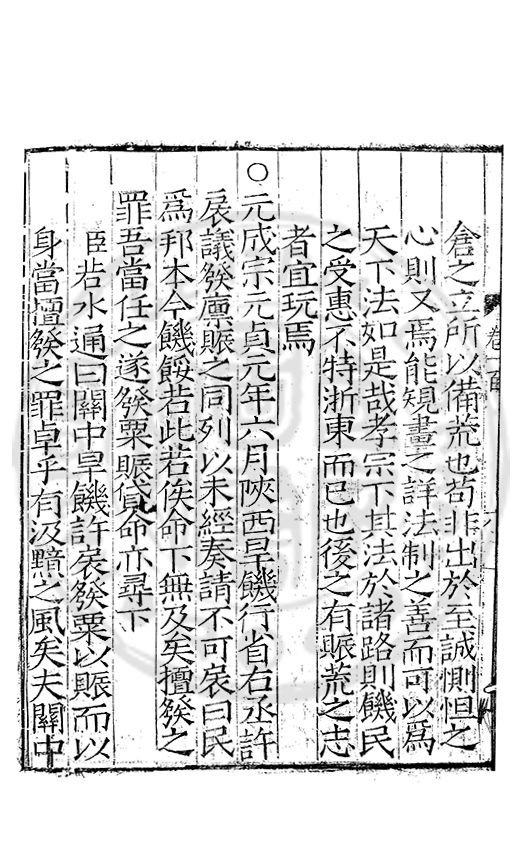 倉之立所以備荒也苟非出於至誠惻怛之
心則又焉能規畫之詳法制之善而可以爲
天下法如是哉孝宗下其法於諸路則饑民
之受惠不特浙東而已也後之有賑荒之志
者宜玩焉
○元成宗元貞元年六月陝西旱饑行省右丞許
扆議發廩賑之同列以未經奏請不可扆曰民
爲邦本今饑餒若此若俟命下無及矣擅發之
罪吾當任之遂發粟賑貸命亦尋下
臣若水通曰關中旱饑許扆發粟以賑而以
身當擅發之罪卓乎有汲黯之風矣夫關中